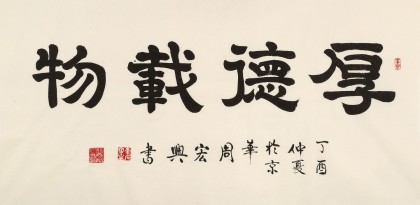 厚德載物
丁酉
仲夏
於京
華周宏興書